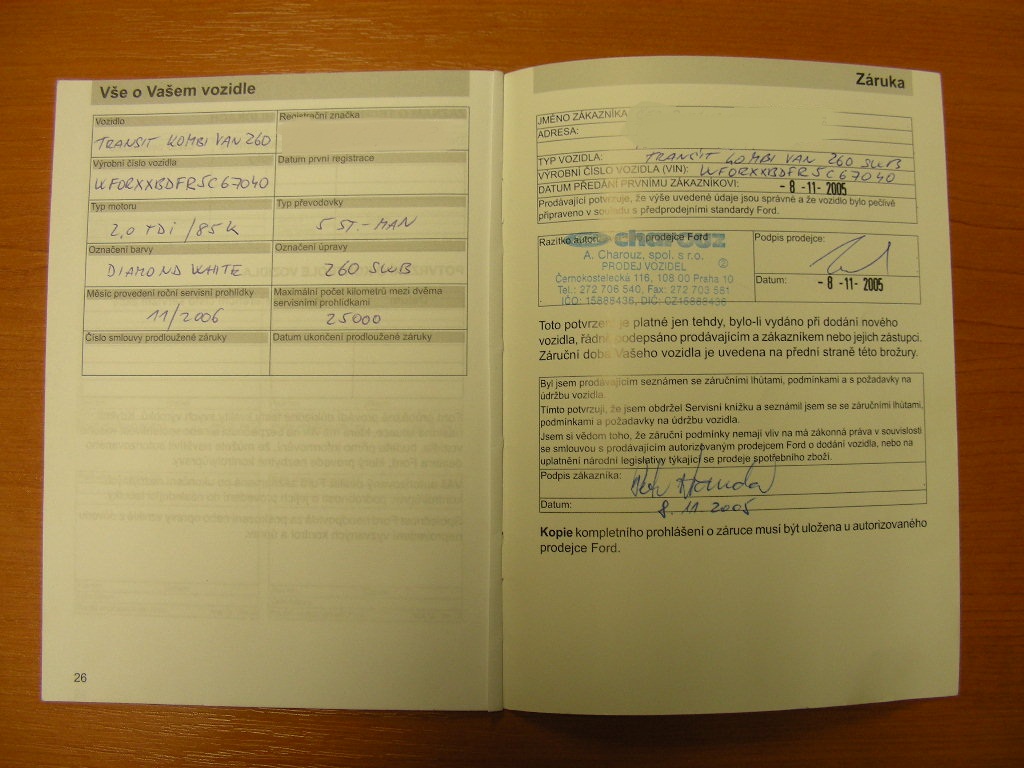 Vše o Vašem vozidle
Vozidlo
TRANSIT KOMBI VAN 260
Registrační značka
Výrobní číslo vozidla
WF0RXXBDFR5C67040
Datum první registrace
Typ motoru
2,0 TDi /85k
Typ převodovky
5 ST.-MAN
Označení barvy
DIAMOND WHITE
Označení úpravy
260 SWB
Měsíc provedení roční servisní prohlídky
11/2006
Maximální počet kilometrů mezi dvěma
servisními prohlídkami
25000
Číslo smlouvy prodloužené záruky
Datum ukončení prodloužené záruky
26
Záruka
JMÉNO ZÁKAZNÍKA
ADRESA:
TYP VOZIDLA: TRANSIT KOMBI VAN 260 SWB
VÝROBNÍ ČÍSLO VOZIDLA (VIN): WF0RXXBDFR5C67040
DATUM PŘEDÁNÍ PRVNÍMU ZÁKAZNÍKOVI: - 8 -11- 2005
Prodávající potvrzuje, že výše uvedené údaje jsou správné a že vozidlo bylo pečlivě
připraveno v souladu s předprodejními standardy Ford.
Razítko autori. prodejce Ford
charouz
A. Charouz, spol. s r.o.
PRODEJ VOZIDEL ②
Černokostelecká 116, 108 00 Praha 10
Tel.: 272 706 540, Fax: 272 703 581
IČO: 15888436, DIČ: CZ15888436
Podpis prodejce:
Datum: - 8 -11- 2005
Toto potvrzení je platné jen tehdy, bylo-li vydáno při dodání nového
vozidla, řádně podepsáno prodávajícím a zákazníkem nebo jejich zástupci.
Záruční doba Vašeho vozidla je uvedena na přední straně této brožury.
Byl jsem prodávajícím seznámen se záručními lhůtami, podmínkami a s požadavky na
údržbu vozidla.
Tímto potvrzuji, že jsem obdržel Servisní knížku a seznámil jsem se se záručními lhůtami,
podmínkami a požadavky na údržbu vozidla.
Jsem si vědom toho, že záruční podmínky nemají vliv na má zákonná práva v souvislosti
se smlouvou s prodávajícím autorizovaným prodejcem Ford o dodání vozidla, nebo na
uplatnění národní legislativy týkající se prodeje spotřebního zboží.
Podpis zákazníka:
Datum: 8. 11. 2005
Kopie kompletního prohlášení o záruce musí být uložena u autorizovaného
prodejce Ford.